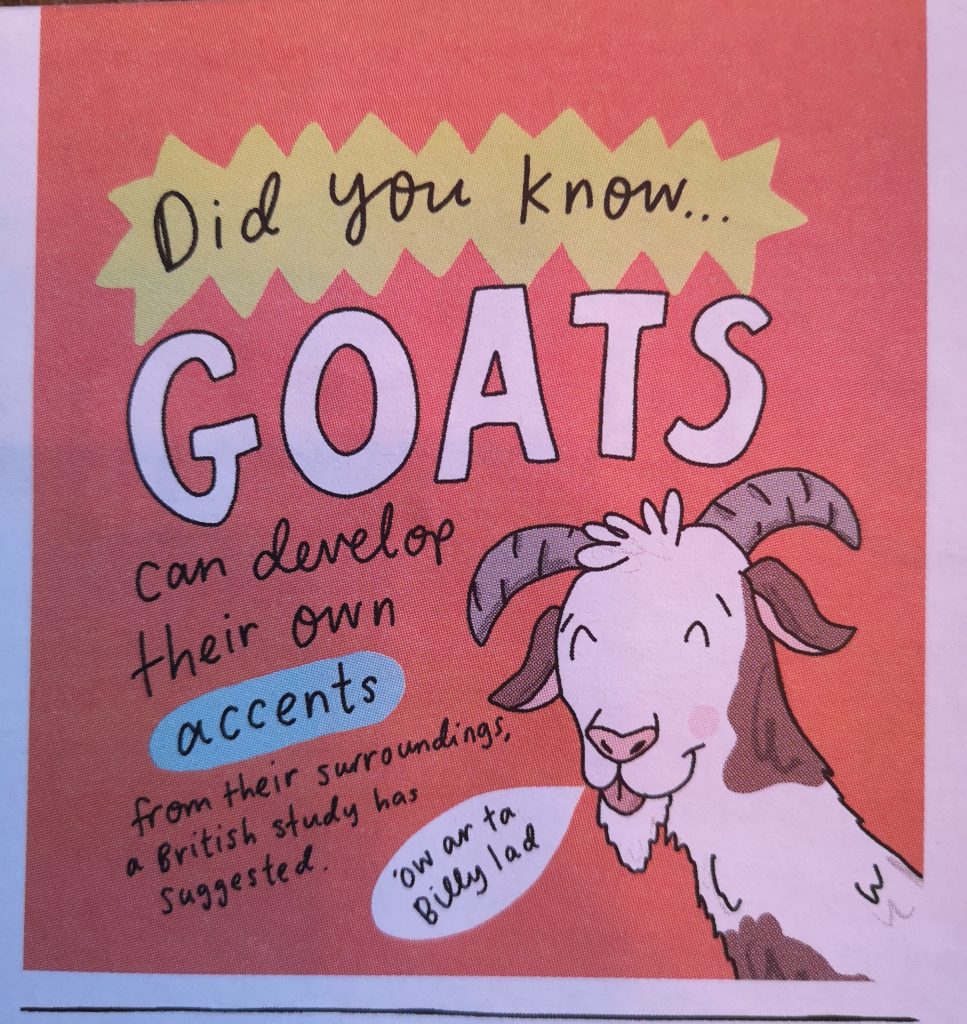 Did you know...
GOATS
can develop
their own
accents
from their surroundings,
a British study has
suggested.
'ow ar ta
Billy lad